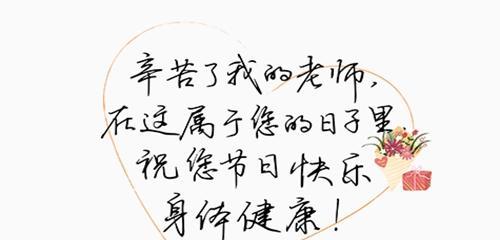 辛苦了我的老师,
在这属于您的日子里
祝您节日快乐
身体健康!